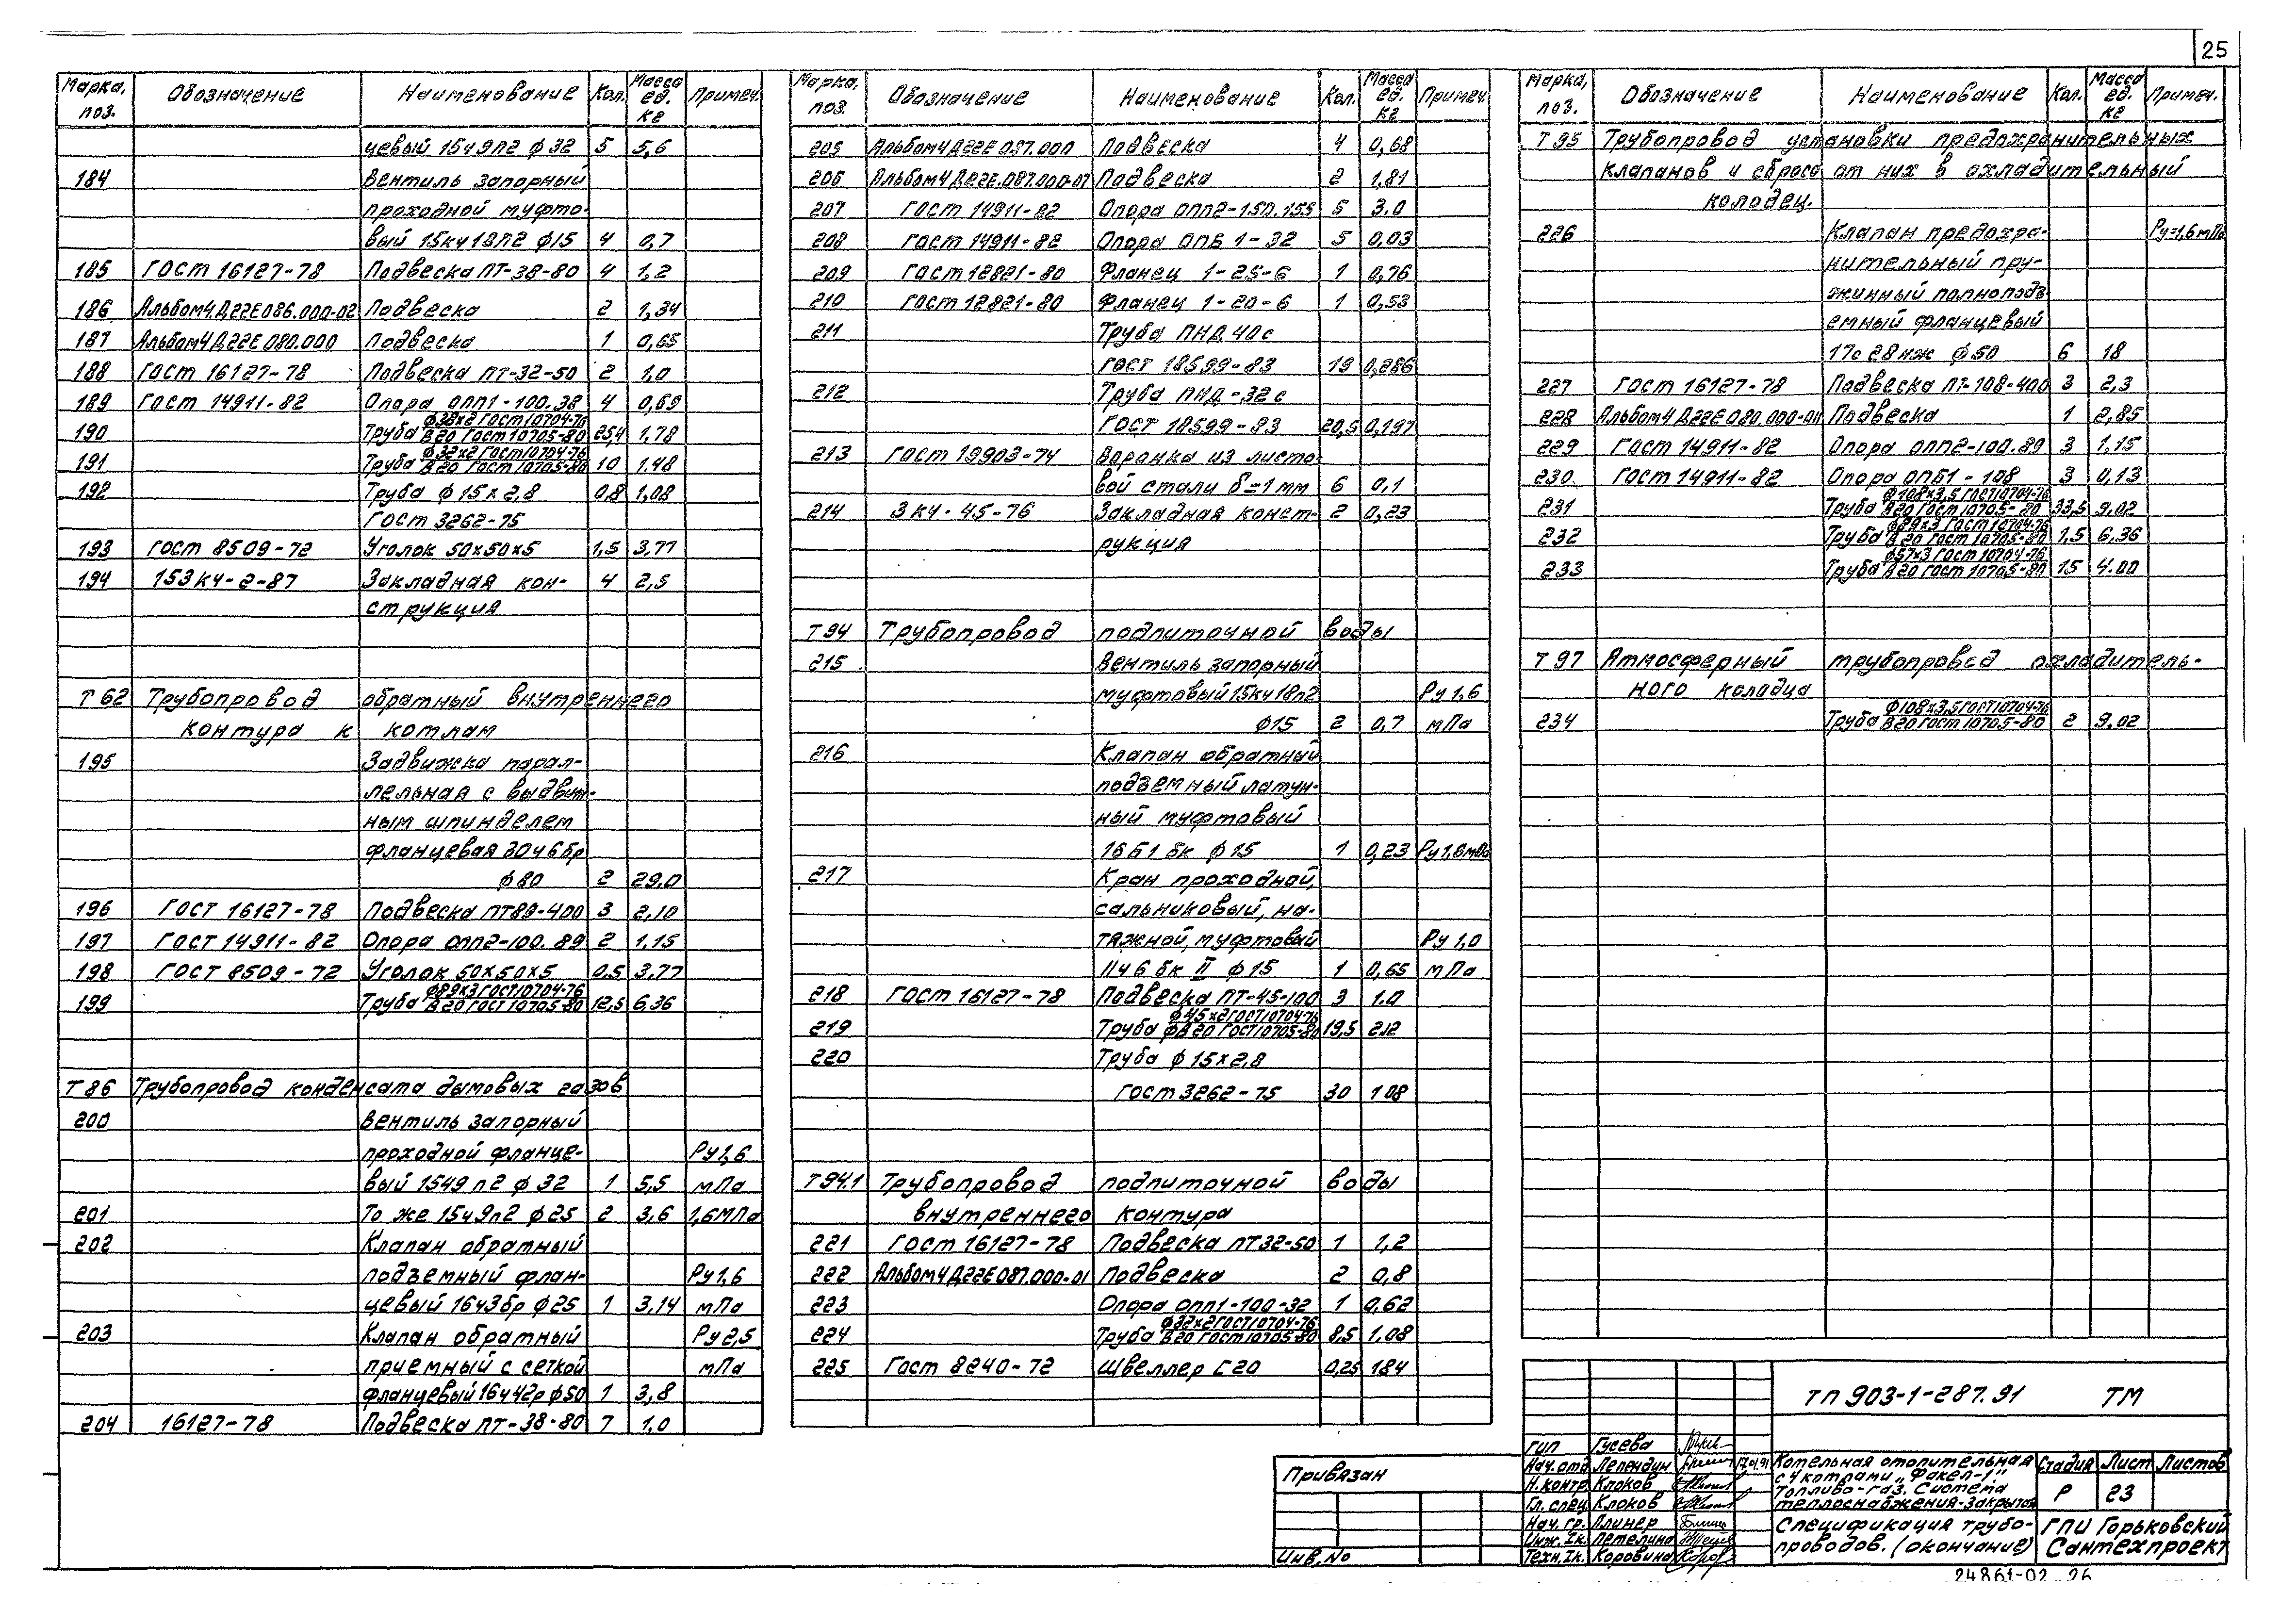 25
Марка, поз. Обозначение Наименование Кол. Масса ед. кг Примеч.
цевый 15ч9п2 ф32 5 5,6
184 Вентиль запорный
проходной муфто-
вый 15кч18п2 ф15 4 0,7
185 ГОСТ 16127-78 Подвеска ПТ-38-80 4 1,2
186 Альбом4Д22Е086.000-02 Подвеска 2 1,34
187 Альбом4Д22Е080.000 Подвеска 1 0,65
188 ГОСТ 16127-78 Подвеска ПТ-32-50 2 1,0
189 ГОСТ 14911-82 Опора ОПП1-100.38 4 0,69
190 Труба ф38х2 ГОСТ 10704-76 / В20 ГОСТ 10705-80 25,4 1,78
191 Труба ф32х2 ГОСТ 10704-76 / В20 ГОСТ 10705-80 10 1.48
192 Труба ф15х2,8 0,8 1,08
ГОСТ 3262-75
193 ГОСТ 8509-72 Уголок 50х50х5 1,5 3,77
194 153кч-2-87 Закладная кон- 4 2,5
струкция
Т62 Трубопровод обратный внутреннего
контура к котлам
195 Задвижка парал-
лельная с выдвиж-
ным шпинделем
фланцевая 30ч6бр
ф80 2 29,0
196 ГОСТ 16127-78 Подвеска ПТ89-400 3 2,10
197 ГОСТ 14911-82 Опора ОПП2-100.89 2 1.15
198 ГОСТ 8509-72 Уголок 50х50х5 0,5 3,77
199 Труба ф89х3 ГОСТ 10704-76 / В20 ГОСТ 10705-80 12,5 6,36
Т86 Трубопровод конденсата дымовых газов
200 Вентиль запорный
проходной фланце- Ру1,6
вый 15ч9п2 ф32 1 5,5 мПа
201 То же 15ч9п2 ф25 2 3,6 1,6МПа
202 Клапан обратный
подъемный флан- Ру1,6
цевый 16ч3бр ф25 1 3,14 мПа
203 Клапан обратный Ру2,5
приемный с сеткой мПа
фланцевый 16ч42р ф50 1 3,8
204 16127-78 Подвеска ПТ-38-80 7 1,0
Марка, поз. Обозначение Наименование Кол. Масса ед. кг Примеч.
205 Альбом4Д22Е087.000 Подвеска 4 0,68
206 Альбом4Д22Е.087.000-07 Подвеска 2 1.81
207 ГОСТ 14911-82 Опора ОПП2-150.159 5 3.0
208 ГОСТ 14911-82 Опора ОПБ 1-32 5 0,03
209 ГОСТ 12821-80 Фланец 1-25-6 1 0,76
210 ГОСТ 12821-80 Фланец 1-20-6 1 0,53
211 Труба ПНД 40с
ГОСТ 18599-83 19 0,286
212 Труба ПНД-32с
ГОСТ 18599-83 20,5 0,197
213 ГОСТ 19903-74 Воронка из листо-
вой стали δ=1мм 6 0,1
214 3кч-45-76 Закладная конст- 2 0,23
рукция
Т94 Трубопровод подпиточной воды
215 Вентиль запорный
муфтовый 15кч18п2 Ру1,6
ф15 2 0,7 мПа
216 Клапан обратный
подъемный латун-
ный муфтовый
16Б1бк ф15 1 0,23 Ру1,6мПа
217 Кран проходной,
сальниковый, на-
тяжной, муфтовый Ру1,0
11ч6бк II ф15 1 0,65 мПа
218 ГОСТ 16127-78 Подвеска ПТ-45-100 3 1.0
219 Труба ф45х2 ГОСТ 10704-76 / фВ20 ГОСТ 10705-80 19,5 2.12
220 Труба ф15х2,8
ГОСТ 3262-75 30 1 08
Т94.1 Трубопровод подпиточной воды
внутреннего контура
221 ГОСТ 16127-78 Подвеска ПТ32-50 1 1,2
222 Альбом4Д22Е087.000-01 Подвеска 2 0,8
223 Опора ОПП1-100-32 1 0,62
224 Труба ф32х2 ГОСТ 10704-76 / В20 ГОСТ 10705-80 8,5 1.08
225 ГОСТ 8240-72 Швеллер С20 0,25 184
Марка, поз. Обозначение Наименование Кол. Масса ед. кг Примеч.
Т95 Трубопровод установки предохранительных
клапанов и сброса от них в охладительный
колодец.
226 Клапан предохра- Ру=1,6мПа
нительный пру-
жинный полнопод-
емный фланцевый
17с28нж ф50 6 18
227 ГОСТ 16127-78 Подвеска ПТ-108-400 3 2,3
228 Альбом4Д22Е080.000-011 Подвеска 1 2,85
229 ГОСТ 14911-82 Опора ОПП2-100.89 3 1,15
230. ГОСТ 14911-82 Опора ОПБ1-108 3 0,13
231 Труба ф108х3,5 ГОСТ 10704-76 / В20 ГОСТ 10705-80 33,5 9,02
232 Труба ф89х3 ГОСТ 10704-76 / В20 ГОСТ 10705-80 1,5 6,36
233 Труба ф57х3 ГОСТ 10704-76 / В20 ГОСТ 10705-80 15 4.00
Т97 Атмосферный трубопровод охладитель-
ного колодца
234 Труба ф108х3,5 ГОСТ 10704-76 / В20 ГОСТ 10705-80 2 9,02
ТП 903-1-287.91 ТМ
Привязан
Инв.No
ГИП Гусева
Нач.отд Лепендин 17.01.91
Н.контр Клоков
Гл.спец Клоков
Нач.гр. Плинер
Инж.Iк. Петелина
Техн.Iк. Коровина
Котельная отопительная
с 4 котлами „Факел-1".
Топливо-газ. Система
теплоснабжения-закрытая
Стадия Лист Листов
Р 23
Спецификация трубо-
проводов. (окончание)
ГПИ Горьковский
Сантехпроект
24861-02 26